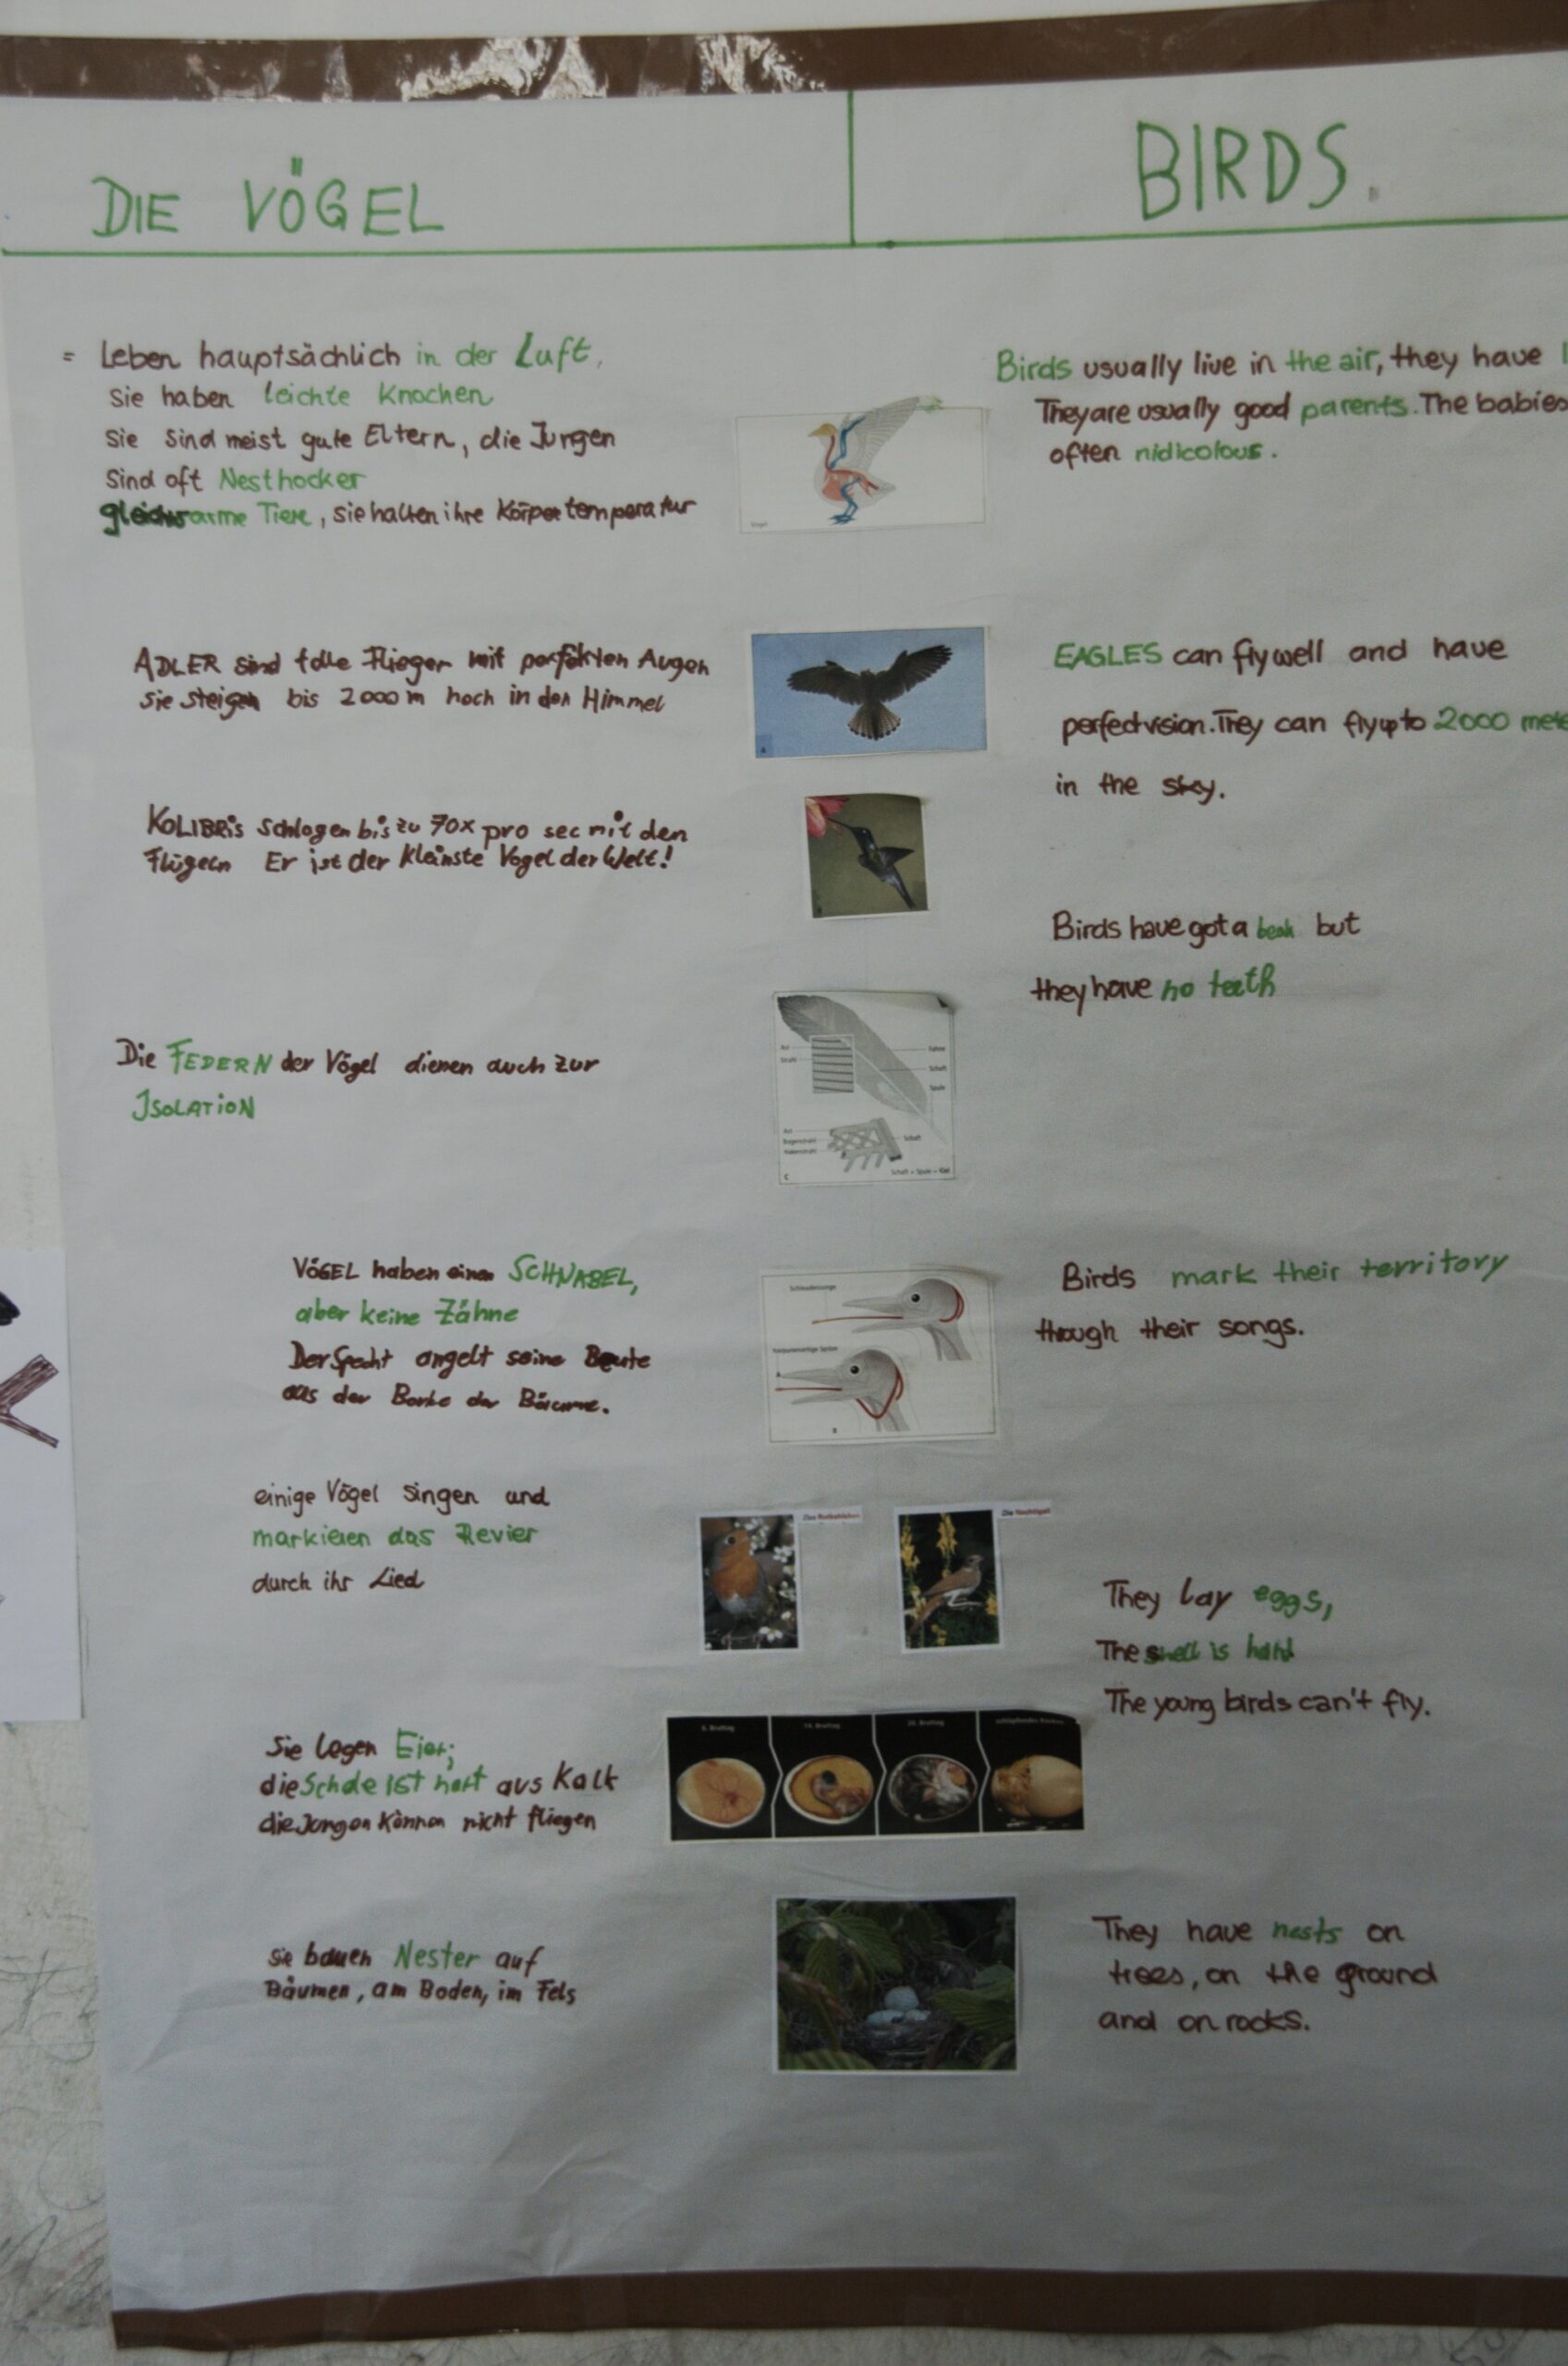 DIE VÖGEL
BIRDS.
= Leben hauptsächlich in der Luft,
Sie haben leichte Knochen
Sie sind meist gute Eltern, die Jungen
sind oft Nesthocker
gleichwarme Tiere, sie halten ihre Körpertemperatur
Vogel
Birds usually live in the air, they have
They are usually good parents. The babies
often nidicolous.
ADLER sind tolle Flieger mit perfekten Augen
Sie steigen bis 2000 m hoch in den Himmel
A
EAGLES can fly well and have
perfect vision. They can fly up to 2000 mete
in the sky.
KOLIBRIS schlagen bis zu 70x pro sec mit den
Flügeln Er ist der kleinste Vogel der Welt!
B
Birds have got a beak but
they have no teeth
Die FEDERN der Vögel dienen auch zur
ISOLATION
Ast
Strahl
Fahne
Schaft
Spule
Ast
Bogenstrahl
Hakenstrahl
Schaft
Schaft + Spule = Kiel
C
VÖGEL haben einen SCHNABEL,
aber keine Zähne
Der Specht angelt seine Beute
aus der Borke der Bäume.
Schleuderzunge
harpunenartige Spitze
B
Birds mark their territory
through their songs.
einige Vögel singen und
markieren das Revier
durch ihr Lied
Das Rotkehlchen
Die Nachtigall
They lay eggs,
The shell is hard
The young birds can't fly.
Sie legen Eier;
die Schale ist hart aus Kalk
die Jungen können nicht fliegen
Bruttag
Bruttag
Bruttag
schlüpfendes Küken
sie bauen Nester auf
Bäumen, am Boden, im Fels
They have nests on
trees, on the ground
and on rocks.